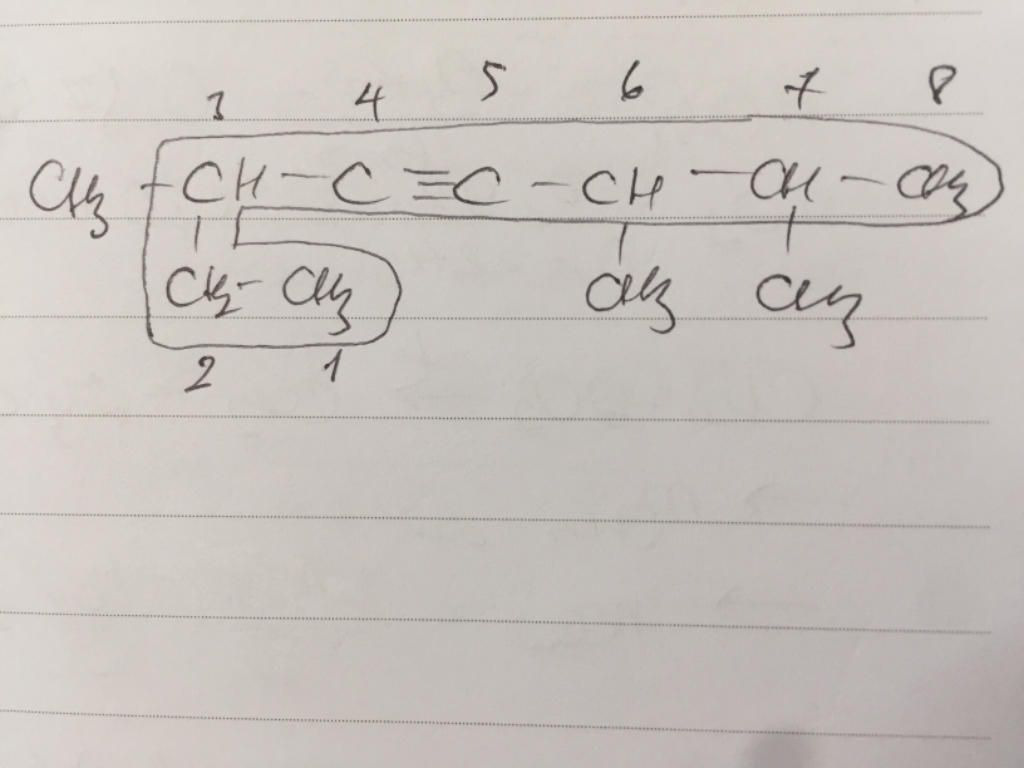 3 4 5 6 7 8
CH3 - CH - C ≡ C - CH - CH - CH3
| | |
CH2 - CH3 CH3 CH3
2 1